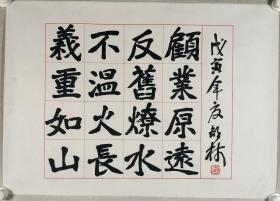 義不反顧
重溫舊業
如火燎原
山長水遠
戊寅年